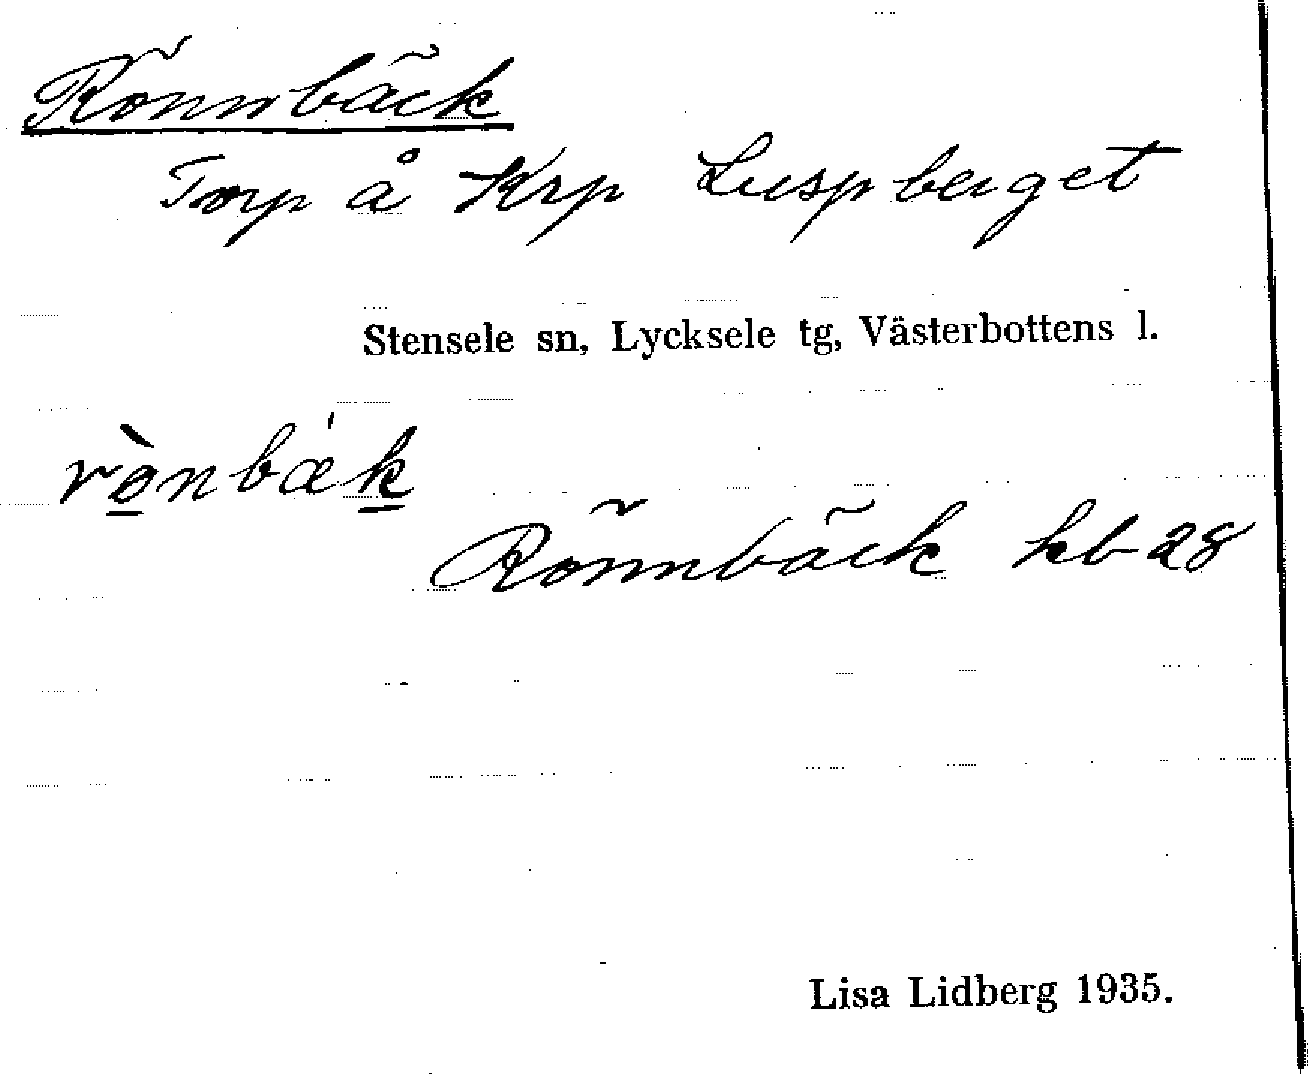 Rönnbäck
Torp å Krp Luspberget
Stensele sn, Lycksele tg, Västerbottens l.
rò̱nbǽḵ
Rönnbäck kb 28
Lisa Lidberg 1935.